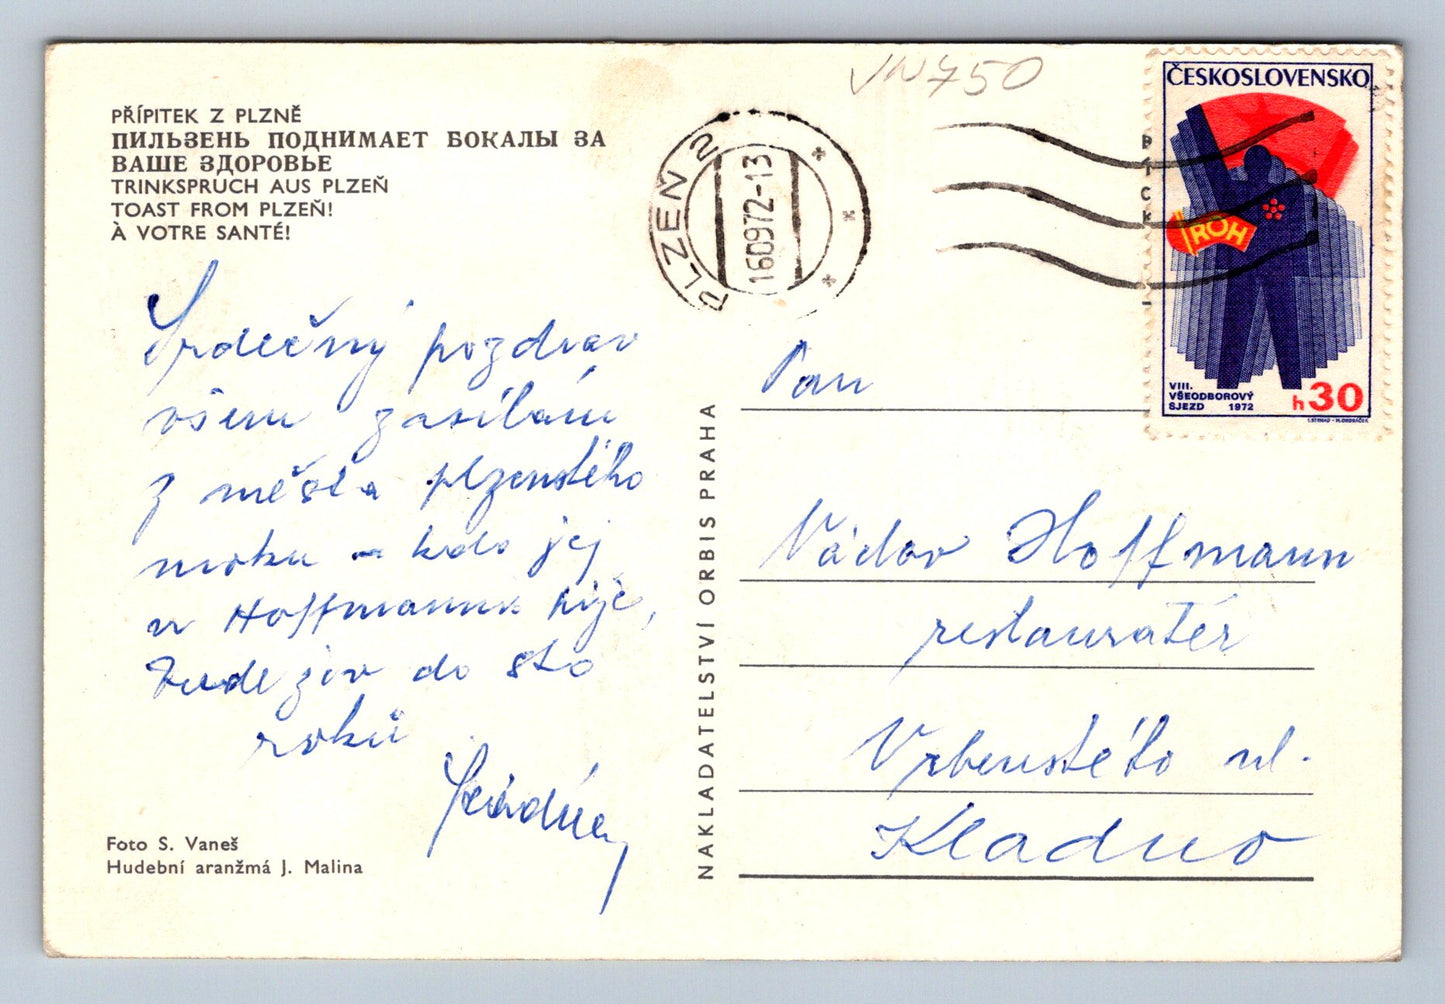 PŘÍPITEK Z PLZNĚ
ПИЛЬЗЕНЬ ПОДНИМАЕТ БОКАЛЫ ЗА
ВАШЕ ЗДОРОВЬЕ
TRINKSPRUCH AUS PLZEŇ
TOAST FROM PLZEŇ!
À VOTRE SANTÉ!
Srdečný pozdrav
všem zasílám
z města plzeňského
moku - kdo jej
u Hoffmannů pije,
bude živ do sto
roků
Foto S. Vaneš
Hudební aranžmá J. Malina
NAKLADATELSTVÍ ORBIS PRAHA
VN750
PLZEŇ 2
160972-13
ČESKOSLOVENSKO
ROH
VIII.
VŠEODBOROVÝ
SJEZD 1972
h30
Pan
Václav Hoffmann
restauratér
Vrbenského ul.
Kladno